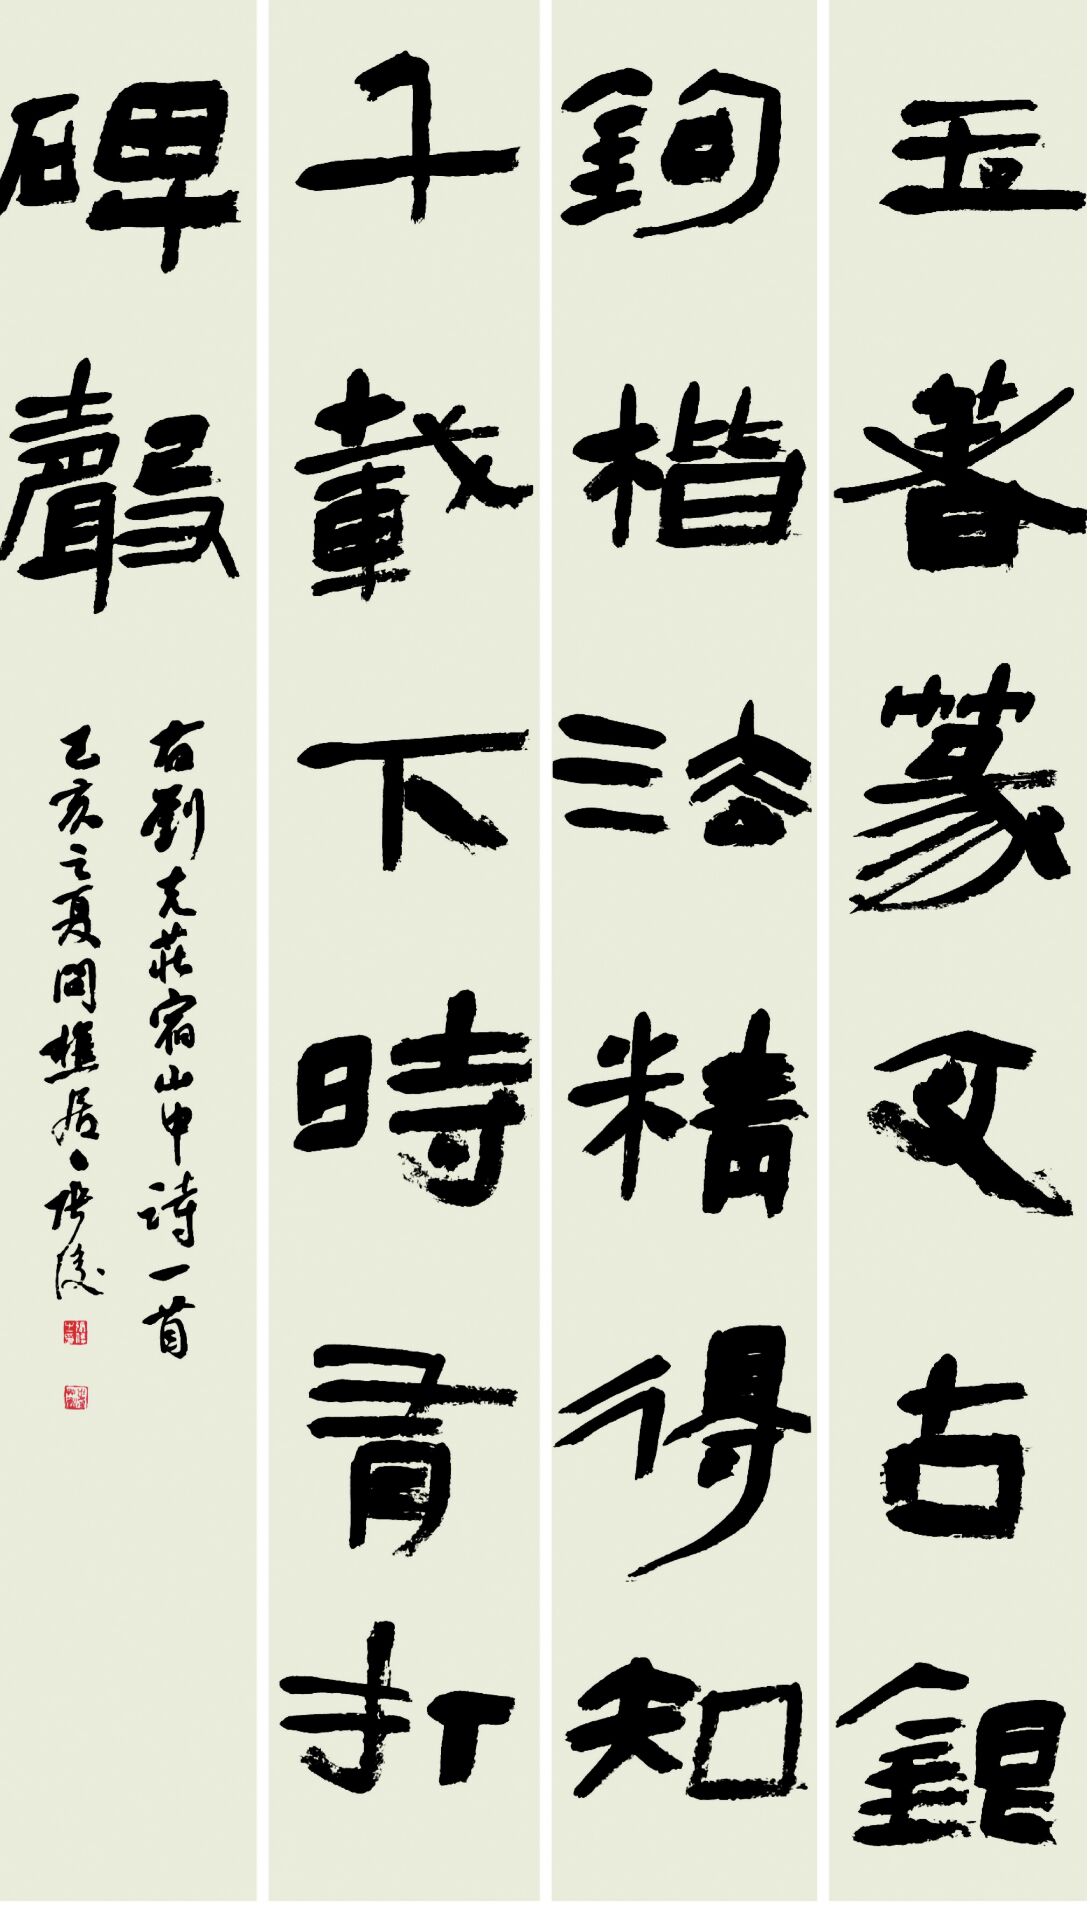 玉著篆文古銀
鉤楷法精得知
千載下時有打
碑聲
右劉克莊宿山中詩一首
己亥之夏問樵居張陵